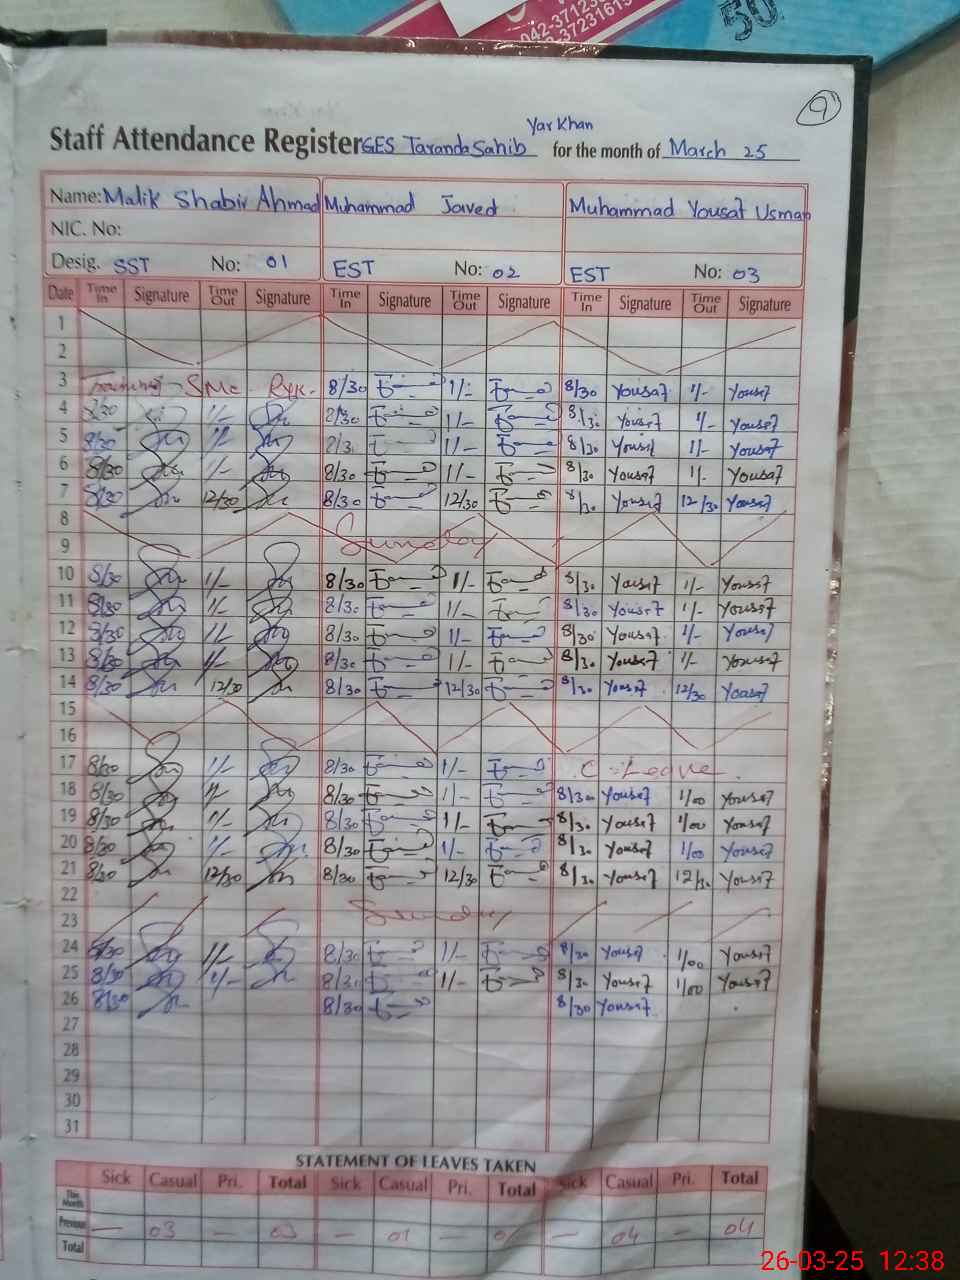 042-3712
50
-37231613
9
Yar Khan
Staff Attendance Register GES TarandaSahib for the month of March 25
Name: Malik Shabir Ahmad Muhammad Javed Muhammad Yousaf Usman
NIC. No:
Desig. SST No: 01 EST No: 02 EST No: 03
Date Time In Signature Time Out Signature Time In Signature Time Out Signature Time In Signature Time Out Signature
1
2
3 Training SMC RYK. 8/30 1/- 8/30 Yousaf 1/- Yousaf
4 8/30 1/- 8/30 1/- 8/30 Yousaf 1/- Yousaf
5 8/30 1/- 8/30 1/- 8/30 Yousaf 1/- Yousaf
6 8/30 1/- 8/30 1/- 8/30 Yousaf 1/- Yousaf
7 8/30 12/30 8/30 12/30 8/30 Yousaf 12/30 Yousaf
8
9 Sunday
10 8/30 1/- 8/30 1/- 8/30 Yousaf 1/- Yousaf
11 8/30 1/- 8/30 1/- 8/30 Yousaf 1/- Yousaf
12 8/30 1/- 8/30 1/- 8/30 Yousaf 1/- Yousaf
13 8/30 1/- 8/30 1/- 8/30 Yousaf 1/- Yousaf
14 8/30 12/30 8/30 12/30 8/30 Yousaf 12/30 Yousaf
15
16
17 8/30 1/- 8/30 1/- C. Leave.
18 8/30 1/- 8/30 1/- 8/30 Yousaf 1/00 Yousaf
19 8/30 1/- 8/30 1/- 8/30 Yousaf 1/00 Yousaf
20 8/30 1/- 8/30 1/- 8/30 Yousaf 1/00 Yousaf
21 8/30 12/30 8/30 12/30 8/30 Yousaf 12/30 Yousaf
22
23 Sunday
24 8/30 1/- 8/30 1/- 8/30 Yousaf 1/00 Yousaf
25 8/30 1/- 8/30 1/- 8/30 Yousaf 1/00 Yousaf
26 8/30 8/30 8/30 Yousaf
27
28
29
30
31
STATEMENT OF LEAVES TAKEN
Sick Casual Pri. Total Sick Casual Pri. Total Sick Casual Pri. Total
This Month
Previous — 03 — 03 — 01 — — 04 — 04
Total
26-03-25 12:38